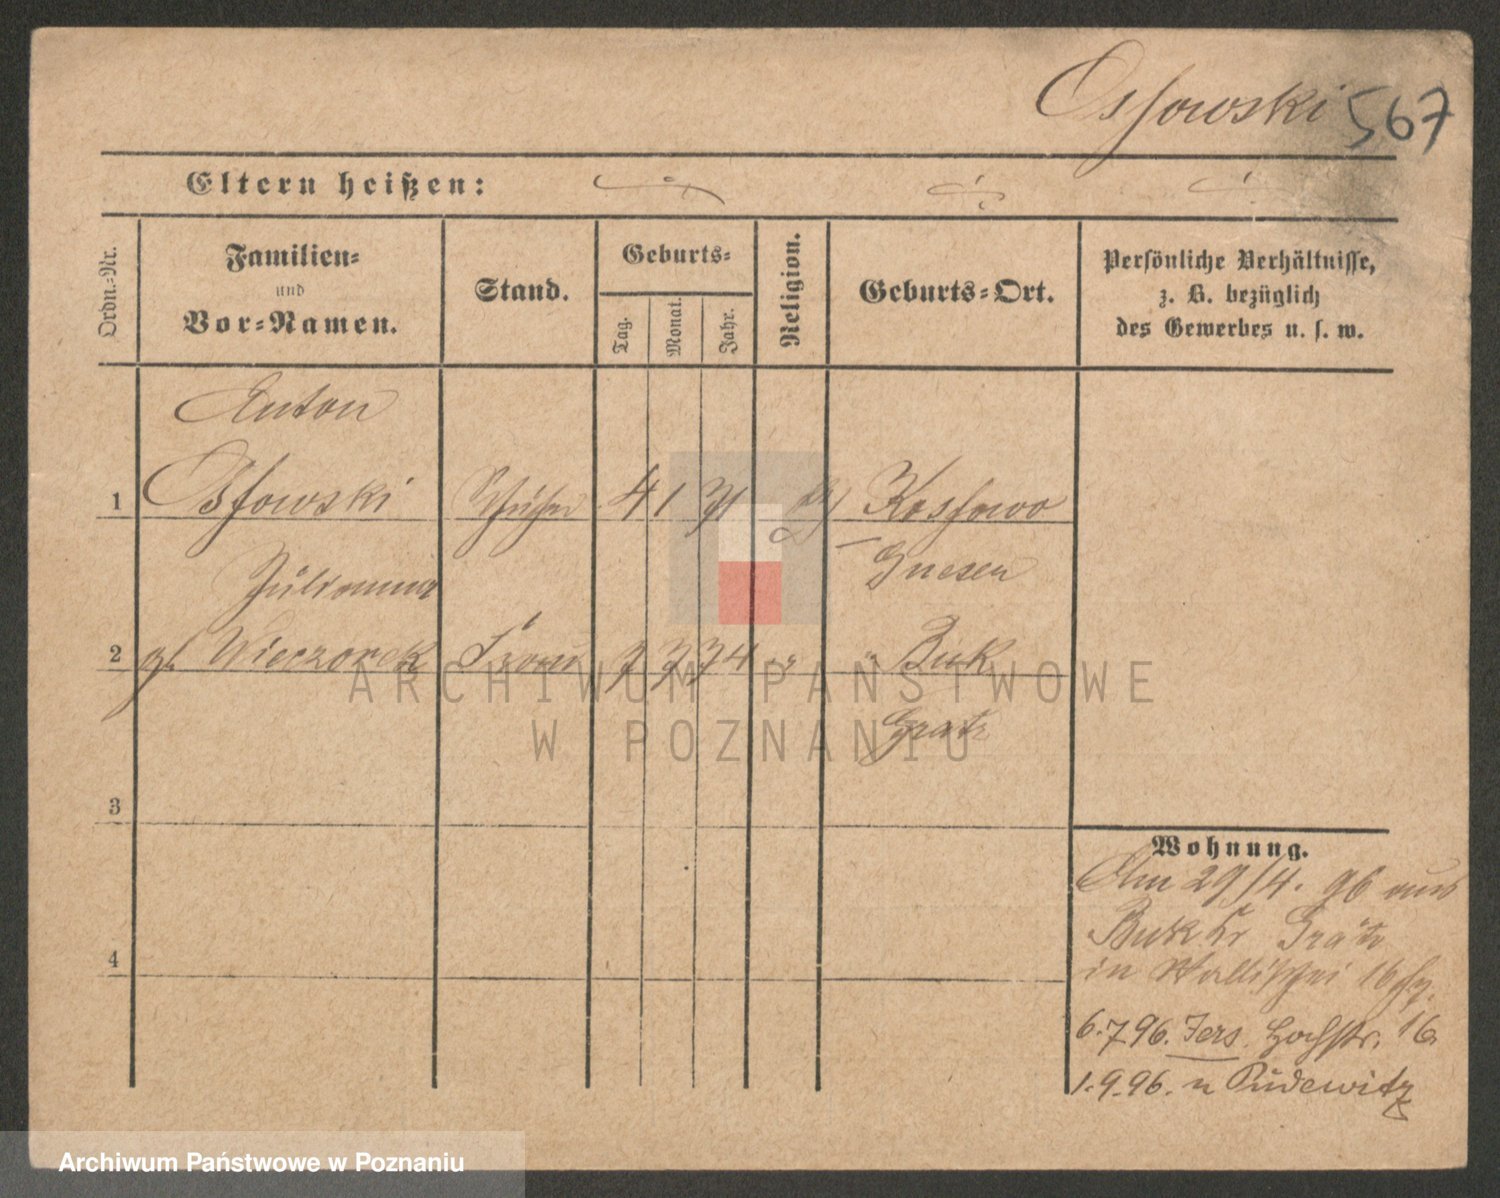 Ossowski 567
Eltern heißen:
Ordn.-Nr.
Familien-
und
Vor-Namen.
Stand.
Geburts-
Tag.
Monat.
Jahr.
Religion.
Geburts-Ort.
Persönliche Verhältnisse,
z. B. bezüglich
des Gewerbes u. s. w.
Anton
1 Ossowski 4 1 71 Kossowo
Gnesen
Julianna
2 Wieczorek Frau 7 7 74 " Buk
Gratz
3
4
Wohnung.
Am 29/4. 96 aus
Buk Kr Grätz
in Wallischei 16
6.7.96. Jers. Hochstr. 16
1.9.96. n Pudewitz
ARCHIWUM PAŃSTWOWE
W POZNANIU
Archiwum Państwowe w Poznaniu